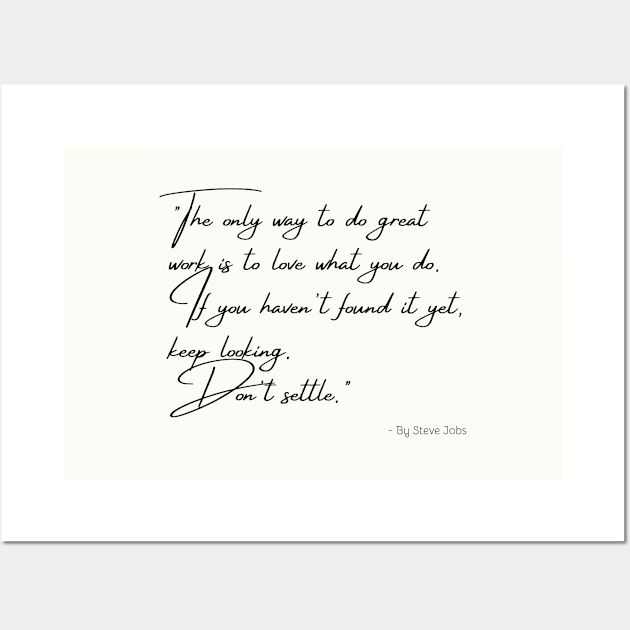 "The only way to do great
work is to love what you do.
If you haven't found it yet,
keep looking.
Don't settle."
- By Steve Jobs